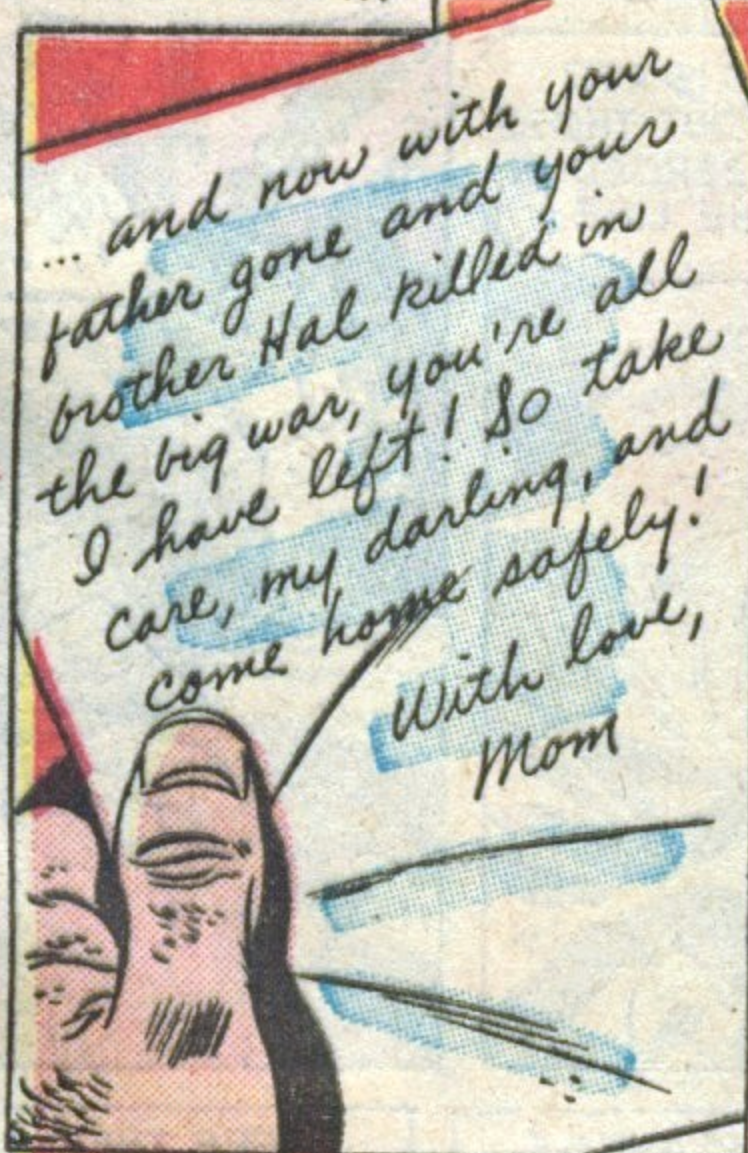 ... and now with your
father gone and your
brother Hal killed in
the big war, you're all
I have left! So take
care, my darling, and
come home safely!
With love,
Mom